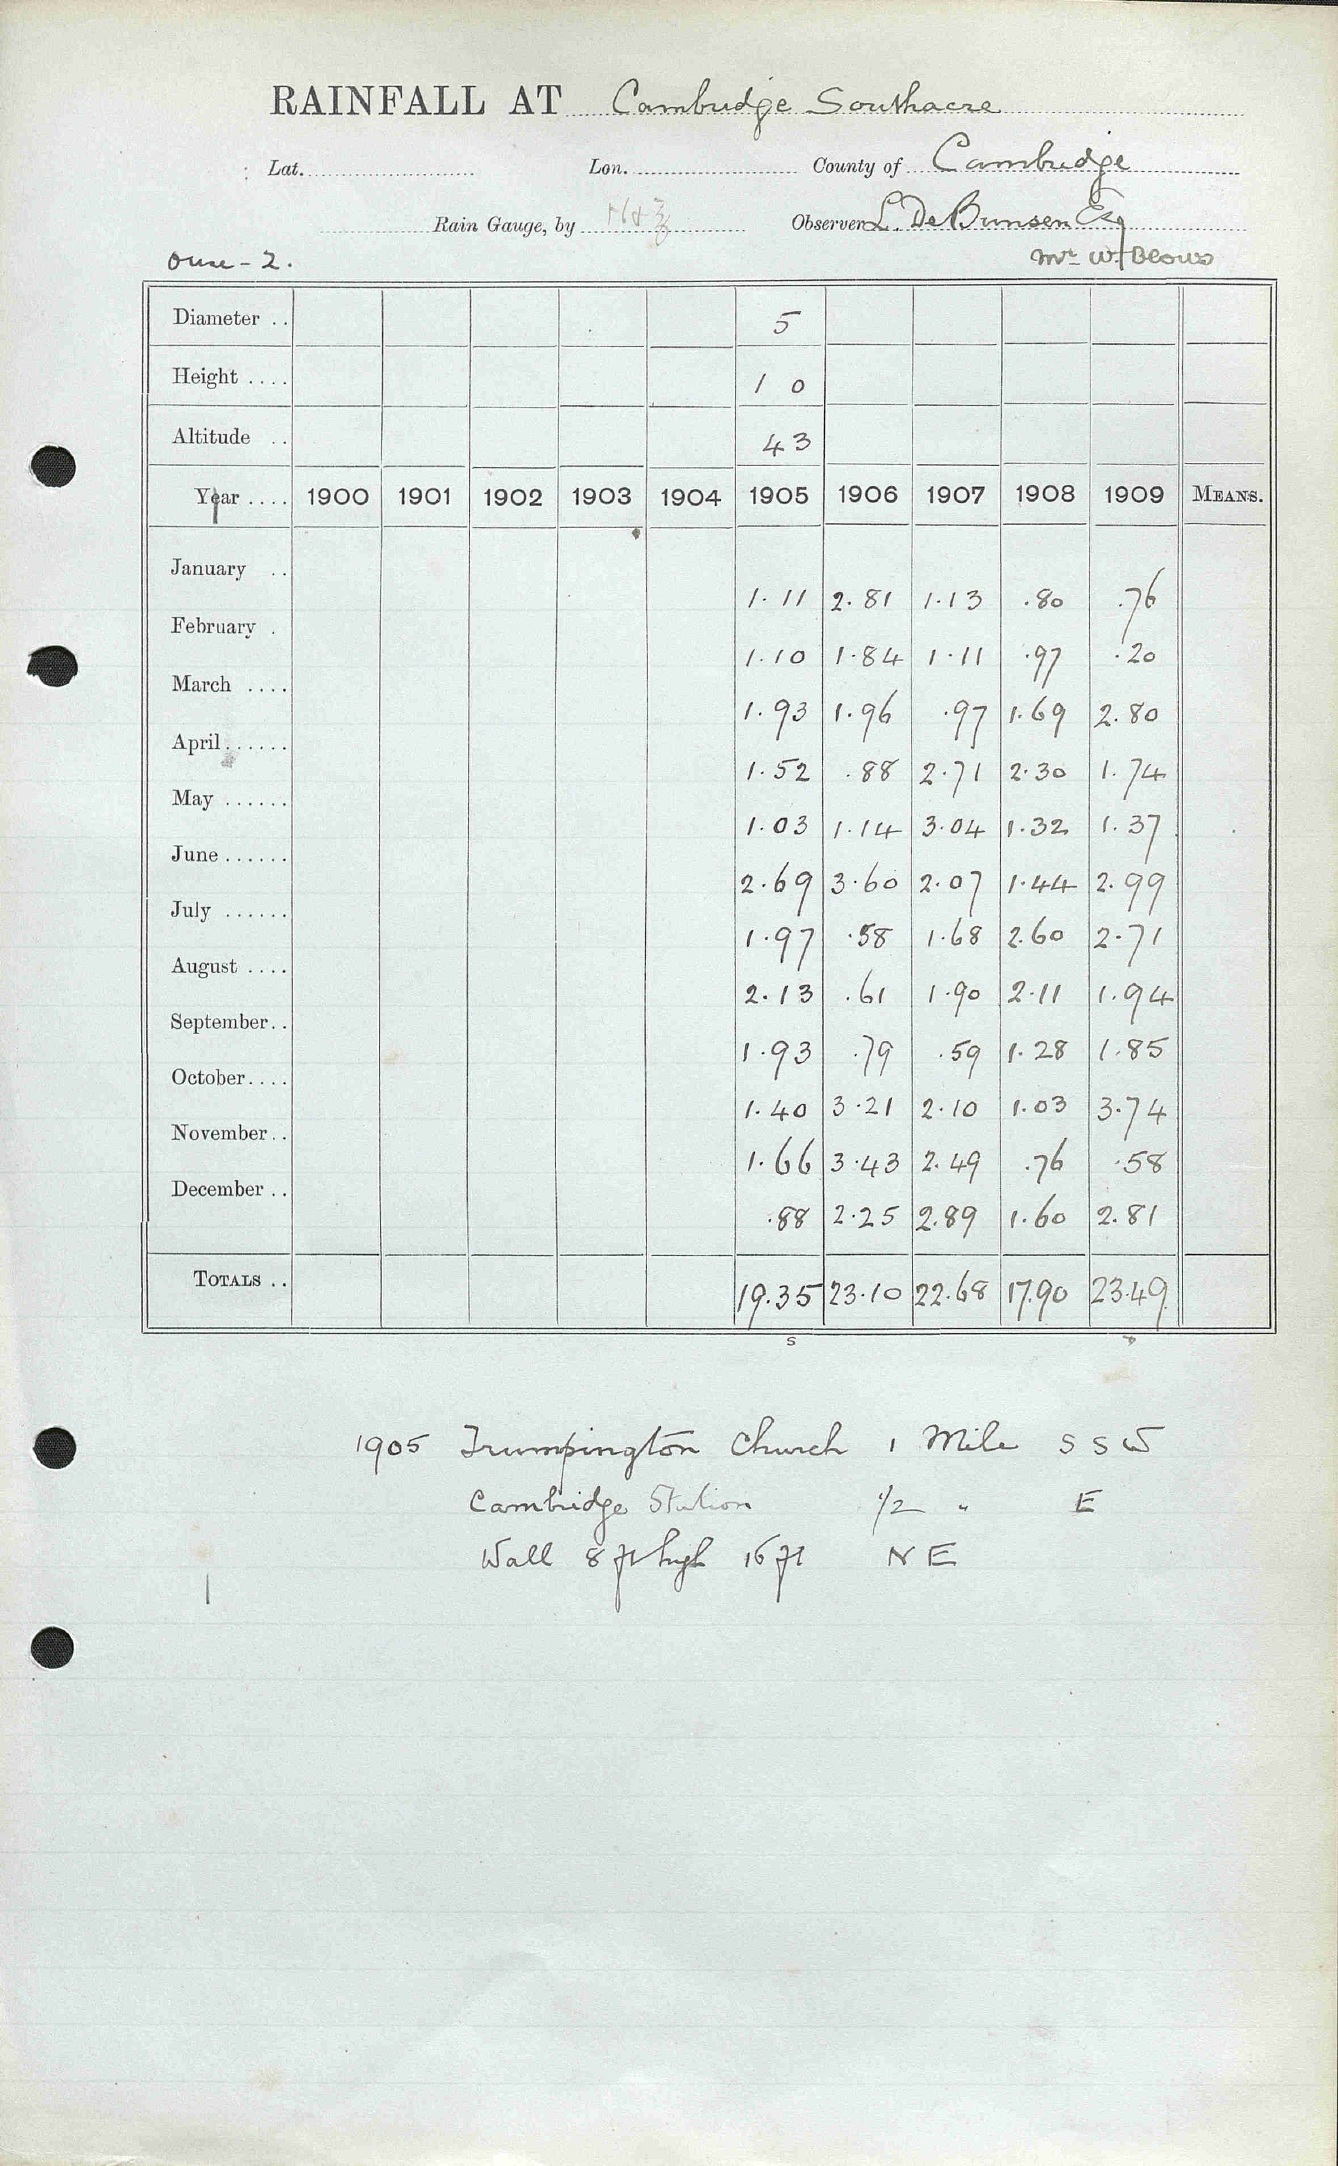 RAINFALL AT Cambridge Southacre
Lat. Lon. County of Cambridge
Rain Gauge, by Observer L. De Bunsen Esq
Ouse - 2. Mr W. Blows
Diameter .. 5
Height .... 1 0
Altitude .. 43
Year .... 1900 1901 1902 1903 1904 1905 1906 1907 1908 1909 MEANS.
January .. 1.11 2.81 1.13 .80 .76
February . 1.10 1.84 1.11 .97 .20
March .... 1.93 1.96 .97 1.69 2.80
April ...... 1.52 .88 2.71 2.30 1.74
May ...... 1.03 1.14 3.04 1.32 1.37
June ...... 2.69 3.60 2.07 1.44 2.99
July ...... 1.97 .58 1.68 2.60 2.71
August .... 2.13 .61 1.90 2.11 1.94
September.. 1.93 .79 .59 1.28 1.85
October.... 1.40 3.21 2.10 1.03 3.74
November.. 1.66 3.43 2.49 .76 .58
December .. .88 2.25 2.89 1.60 2.81
TOTALS .. 19.35 23.10 22.68 17.90 23.49
s
1905 Trumpington Church 1 Mile S S W
Cambridge Station 1/2 " E
Wall 8 ft high 16 ft N E